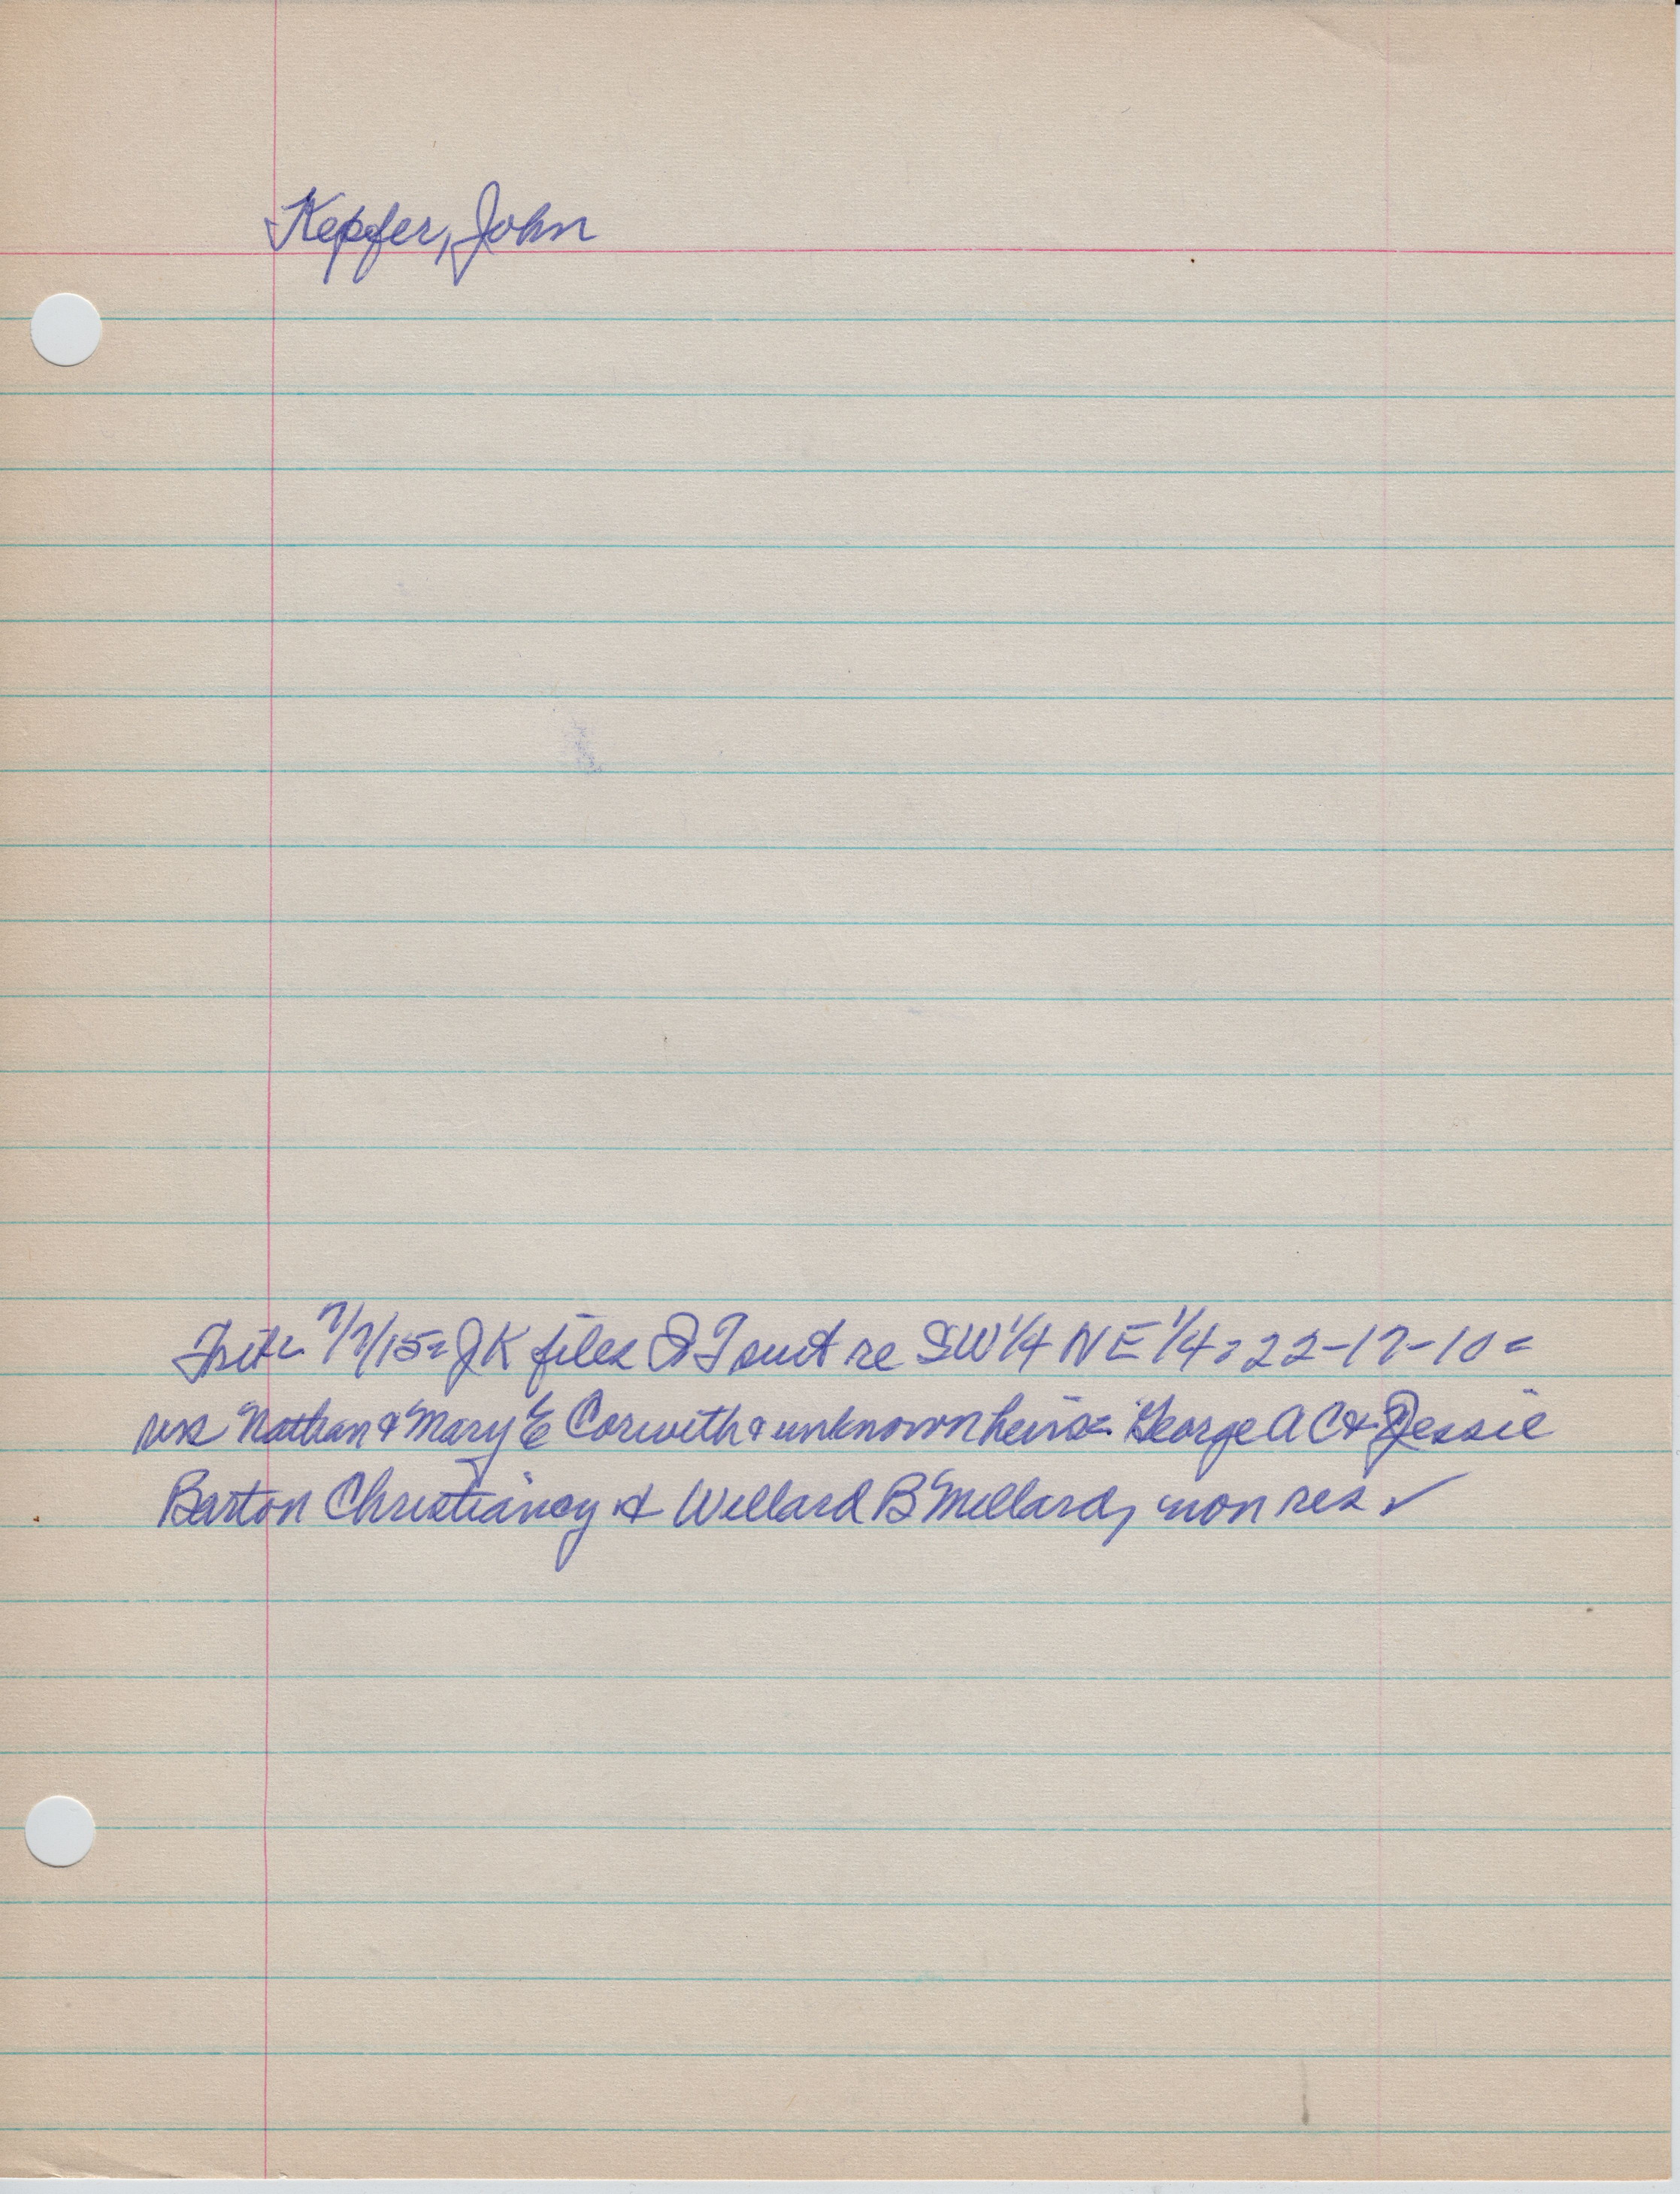 Kepfer, John
Trib 7/7/15= JK files QT suit re SW 1/4 NE 1/4 = 22-17-10 =
vs Nathan & Mary E Corwith & unknown heirs = George A C & Jessie
Barton Christiancy & Willard B Millard, non res ✓